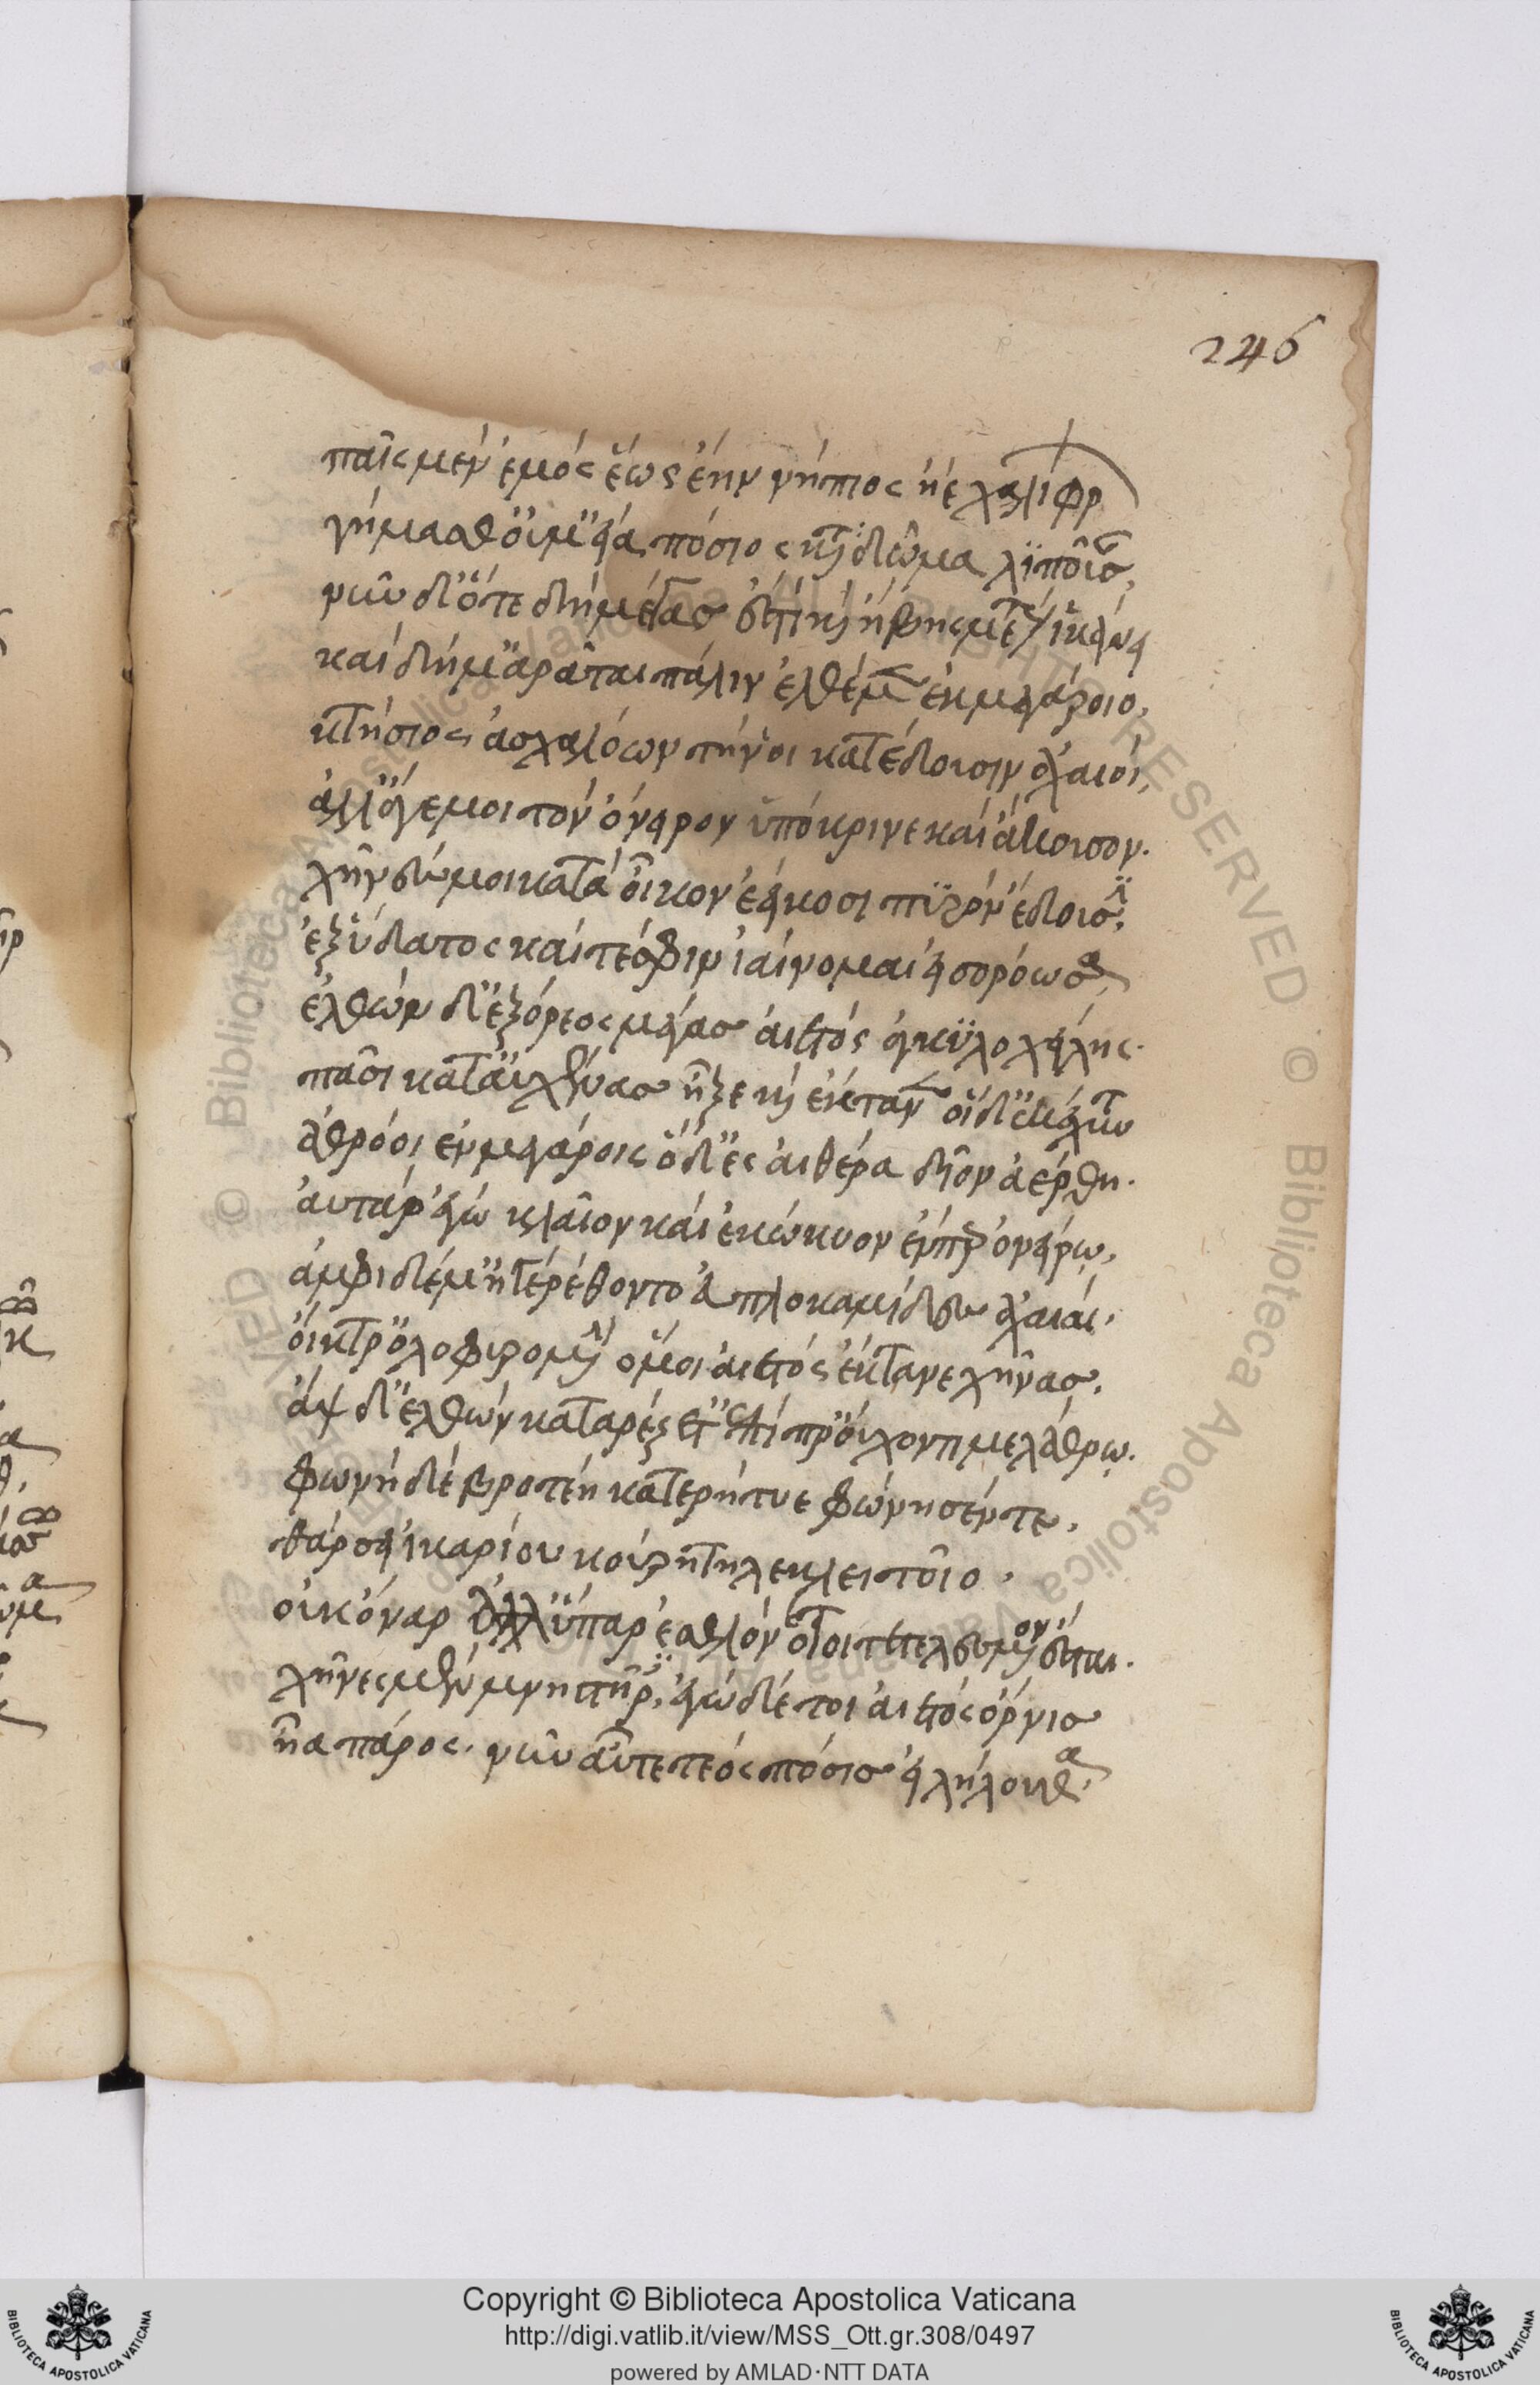 246
παῖς μὲν ἐμὸς ἕως ἔην νήπιος ἠὲ χαλίφρ
γήμασθ' οὔ μ' εἴα πόσιος κατὰ δῶμα λιποῦσαν,
νῦν δ' ὅτε δὴ μέγας ἐστὶ καὶ ἥβης μέτρον ἱκάνει
καὶ δή μ' ἀρᾶται πάλιν ἐλθέμεν ἐκ μεγάροιο,
κτήσιος ἀσχαλόων τήν οἱ κατέδουσιν ἀχαιοί,
ἀλλ' ἄγε μοι τὸν ὄνειρον ὑπόκριναι καὶ ἄκουσον.
χῆνές μοι κατὰ οἶκον ἐείκοσι πυρὸν ἔδουσιν,
ἐξ ὕδατος καὶ τέ σφιν ἰαίνομαι εἰσορόωσα,
ἐλθὼν δ' ἐξ ὄρεος μέγας αἰετὸς ἀγκυλοχείλης.
πᾶσι κατ' αὐχένας ἧξε καὶ ἔκτανεν οἱ δ' ἐκέχυντο
ἀθρόοι ἐν μεγάροις ὁ δ' ἐς αἰθέρα δῖον ἀέρθη.
αὐτὰρ ἐγὼ κλαῖον καὶ ἐκώκυον ἔν περ ὀνείρῳ,
ἀμφὶ δέ μ' ἠγερέθοντο ἐυπλοκαμίδες ἀχαιαί.
οἴκτρ' ὀλοφυρομένην ὅ μοι αἰετὸς ἔκτανε χῆνας.
ἂψ δ' ἐλθὼν κατ' ἄρ' ἕζετ' ἐπὶ προὔχοντι μελάθρῳ.
φωνῇ δὲ βροτέῃ κατερήτυε φώνησέν τε.
θάρσει ἰκαρίου κούρη τηλεκλειτοῖο.
οὐκ ὄναρ ἀλλ' ὕπαρ ἐσθλὸν ὅ τοι τετελεσμένον ἔσται.
χῆνες μὲν μνηστῆρες, ἐγὼ δέ τοι αἰετὸς ὄρνις
ἦα πάρος. νῦν αὖτε τεὸς πόσις εἰλήλουθα.
Copyright © Biblioteca Apostolica Vaticana
http://digi.vatlib.it/view/MSS_Ott.gr.308/0497
powered by AMLAD·NTT DATA